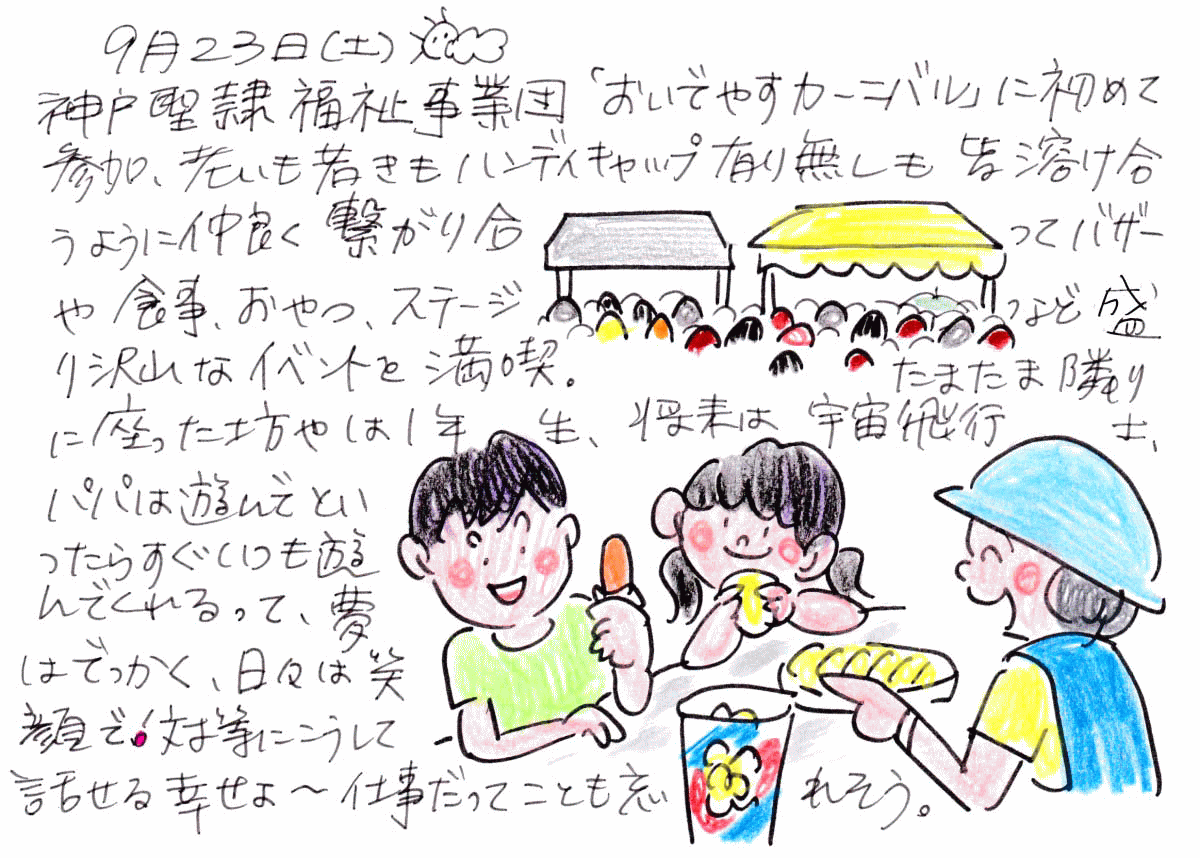 9月23日(土)
神戸聖隷福祉事業団「おいでやすカーニバル」に初めて
参加、老いも若きもハンディキャップ有り無しも皆溶け合
うように仲良く繋がり合ってバザー
や食事、おやつ、ステージなど盛
り沢山なイベントを満喫。たまたま隣り
に座った坊やは1年生、将来は宇宙飛行士、
パパは遊んでとい
ったらすぐいつも遊
んでくれるって、夢
はでっかく、日々は笑
顔で!対等にこうして
話せる幸せよ～仕事だってことも忘れそう。